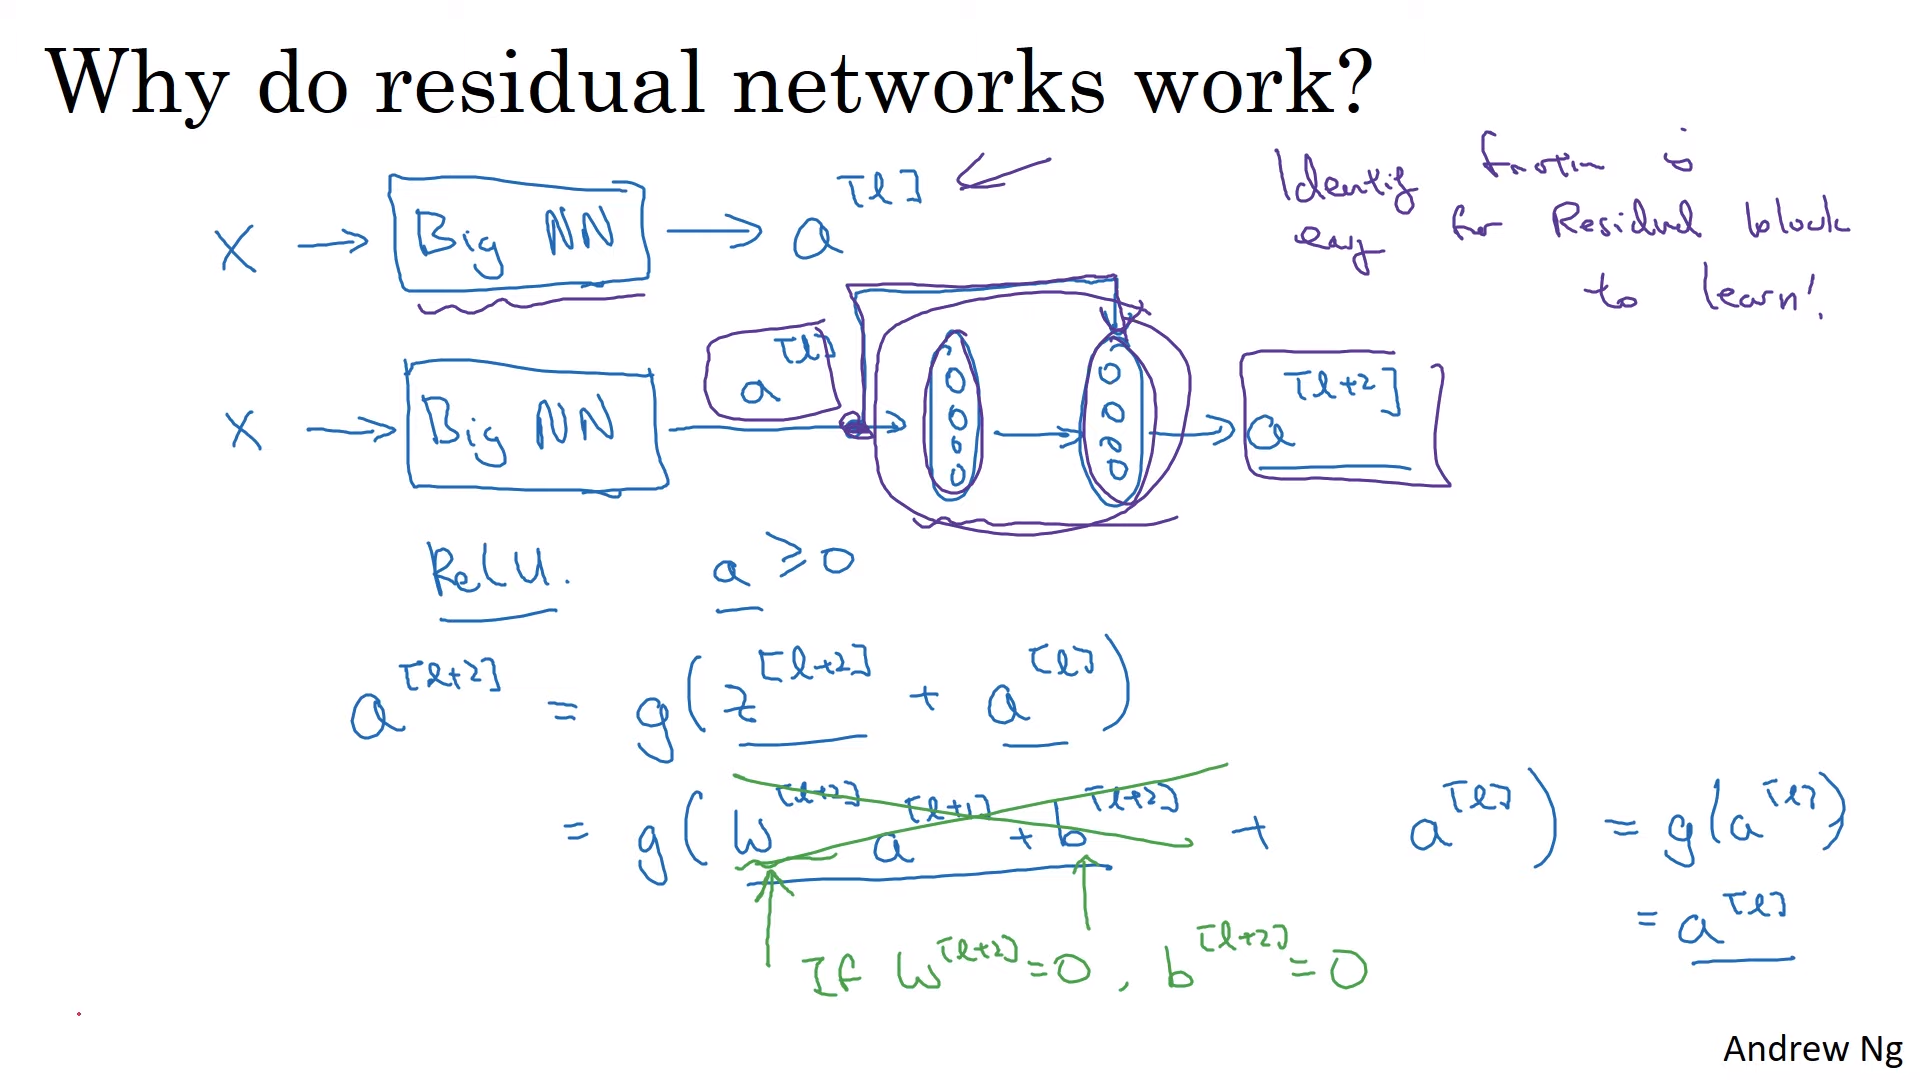 Why do residual networks work?
Identity function is
easy for Residual block
to learn!
X → Big NN → a^[l]
X → Big NN → a^[l] → → a^[l+2]
ReLU. a ≥ 0
a^[l+2] = g(z^[l+2] + a^[l])
= g(W^[l+2] a^[l+1] + b^[l+2] + a^[l]) = g(a^[l])
= a^[l]
If W^[l+2] = 0, b^[l+2] = 0
Andrew Ng